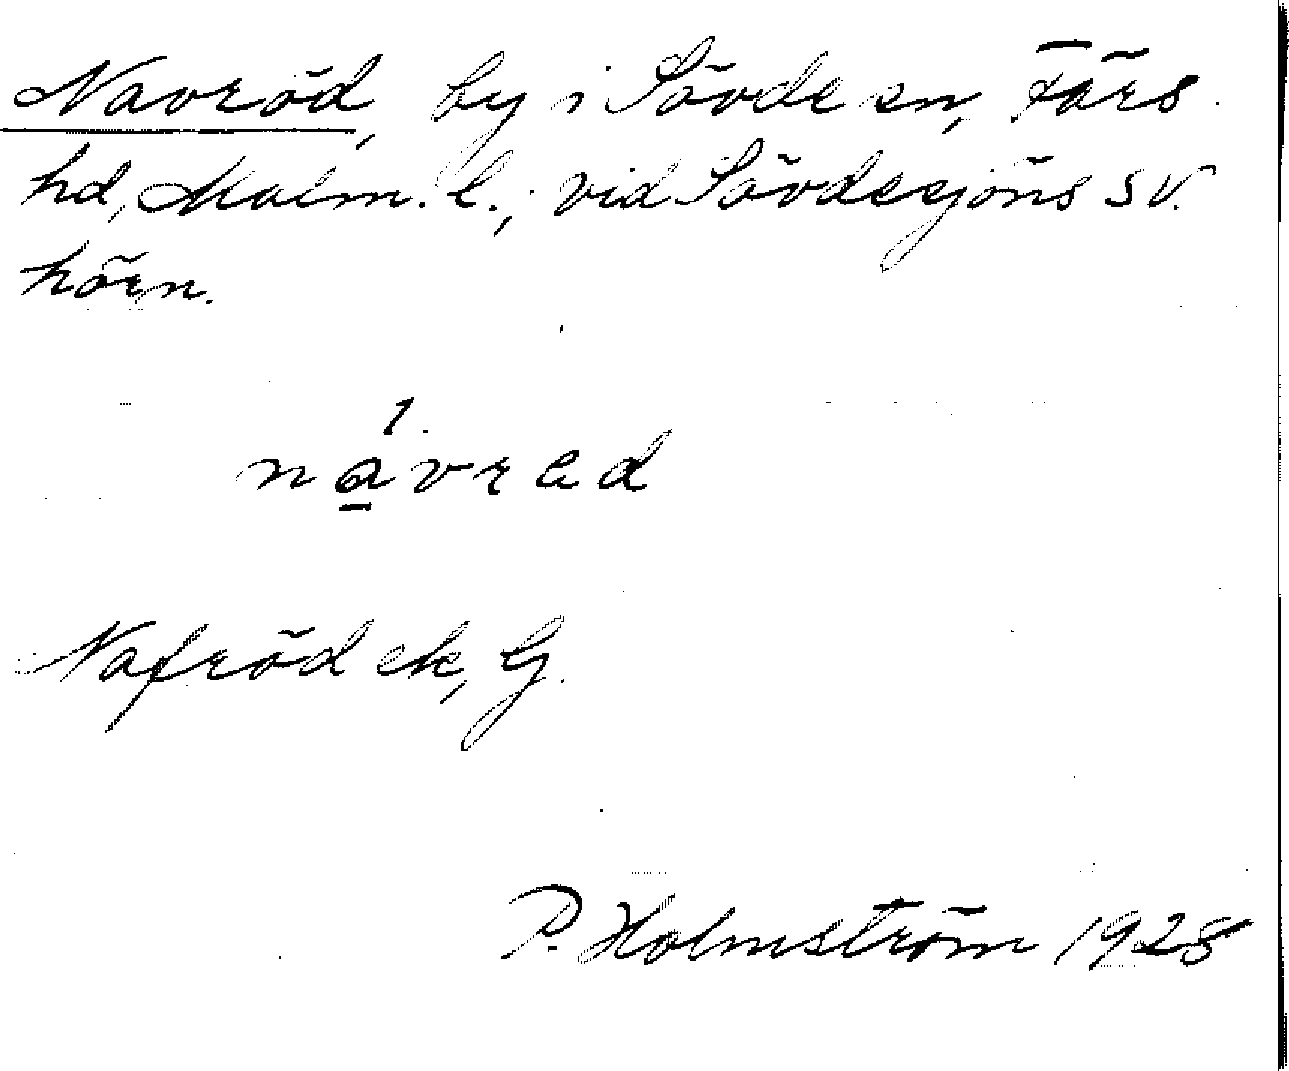 Navröd, by i Sövde sn, Färs
hd, Malm. l., vid Sövdesjöns SV.
hörn.
1.
navrad
Nafröd ek, G.
P. Holmström 1928